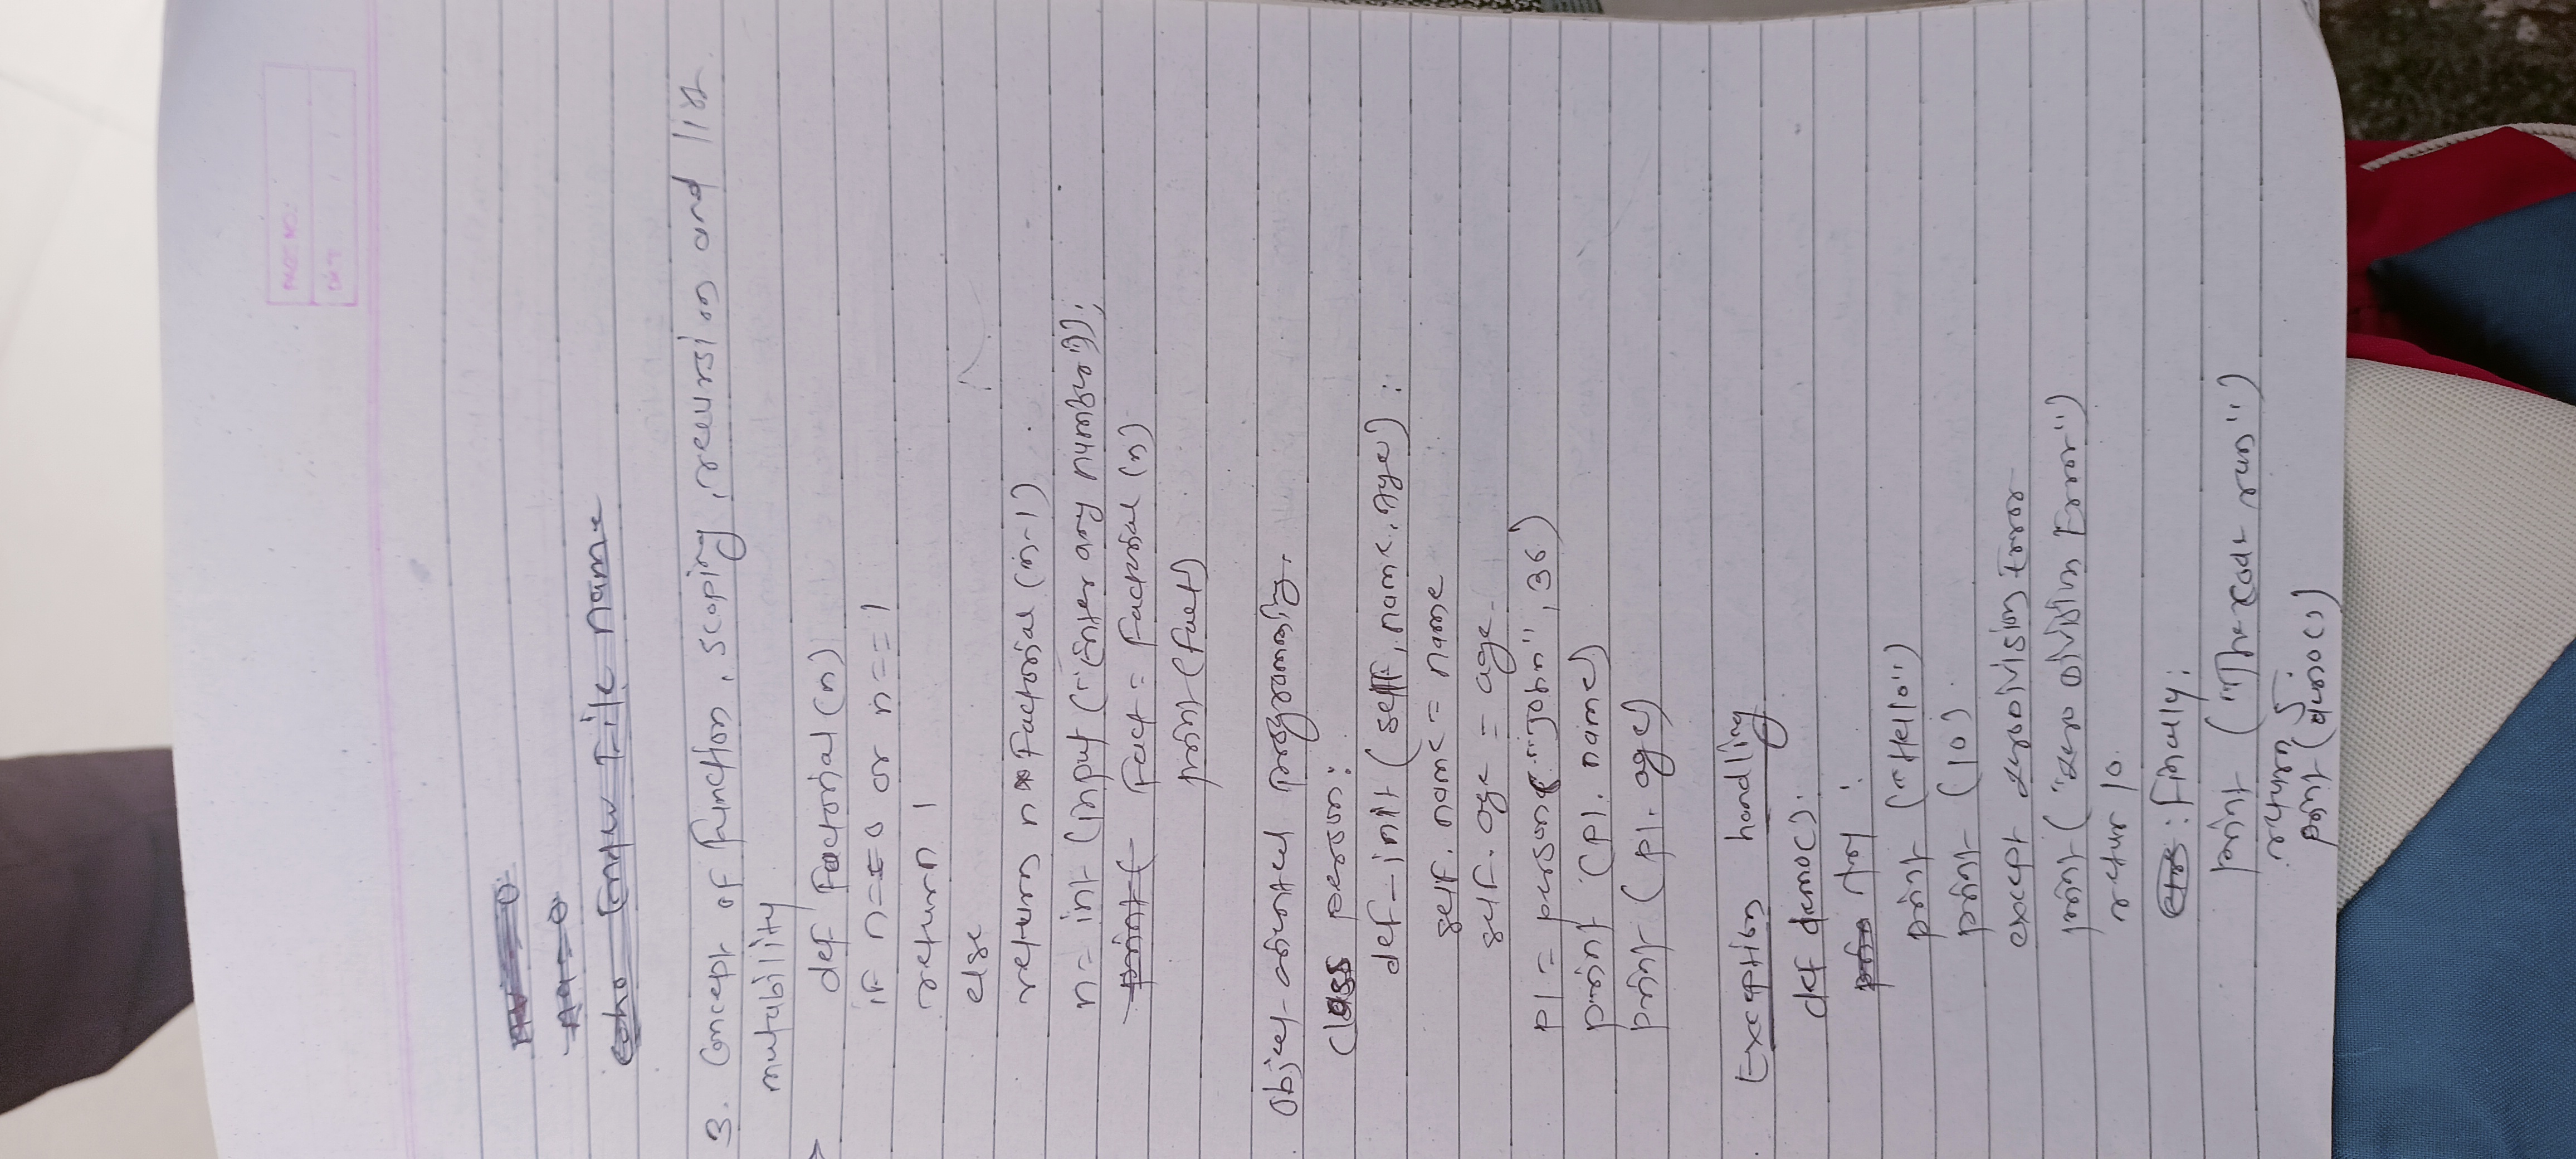 PAGE NO.:
DATE / /
Enter File name
3. Concept of function, scoping, recursion and list
mutability
→ def Factorial(n)
if n==0 or n==1
return 1
else
return n * Factorial (n-1)
n = int (input ("Enter any number"));
print( Fact = Factorial (n)
print (Fact)
Object-oriented programming.
Class person:
def-init (self, name, Age) :
self. name = name
self. age = age.
p1 = person ("John", 36)
print (p1. name)
print (p1. age)
Exception handling
def demo():
try :
print ("Hello")
print (10)
except zerodivision Error
print ("zero division Error")
retur 10
: finally:
print ("The code runs")
return 5
print (demo())